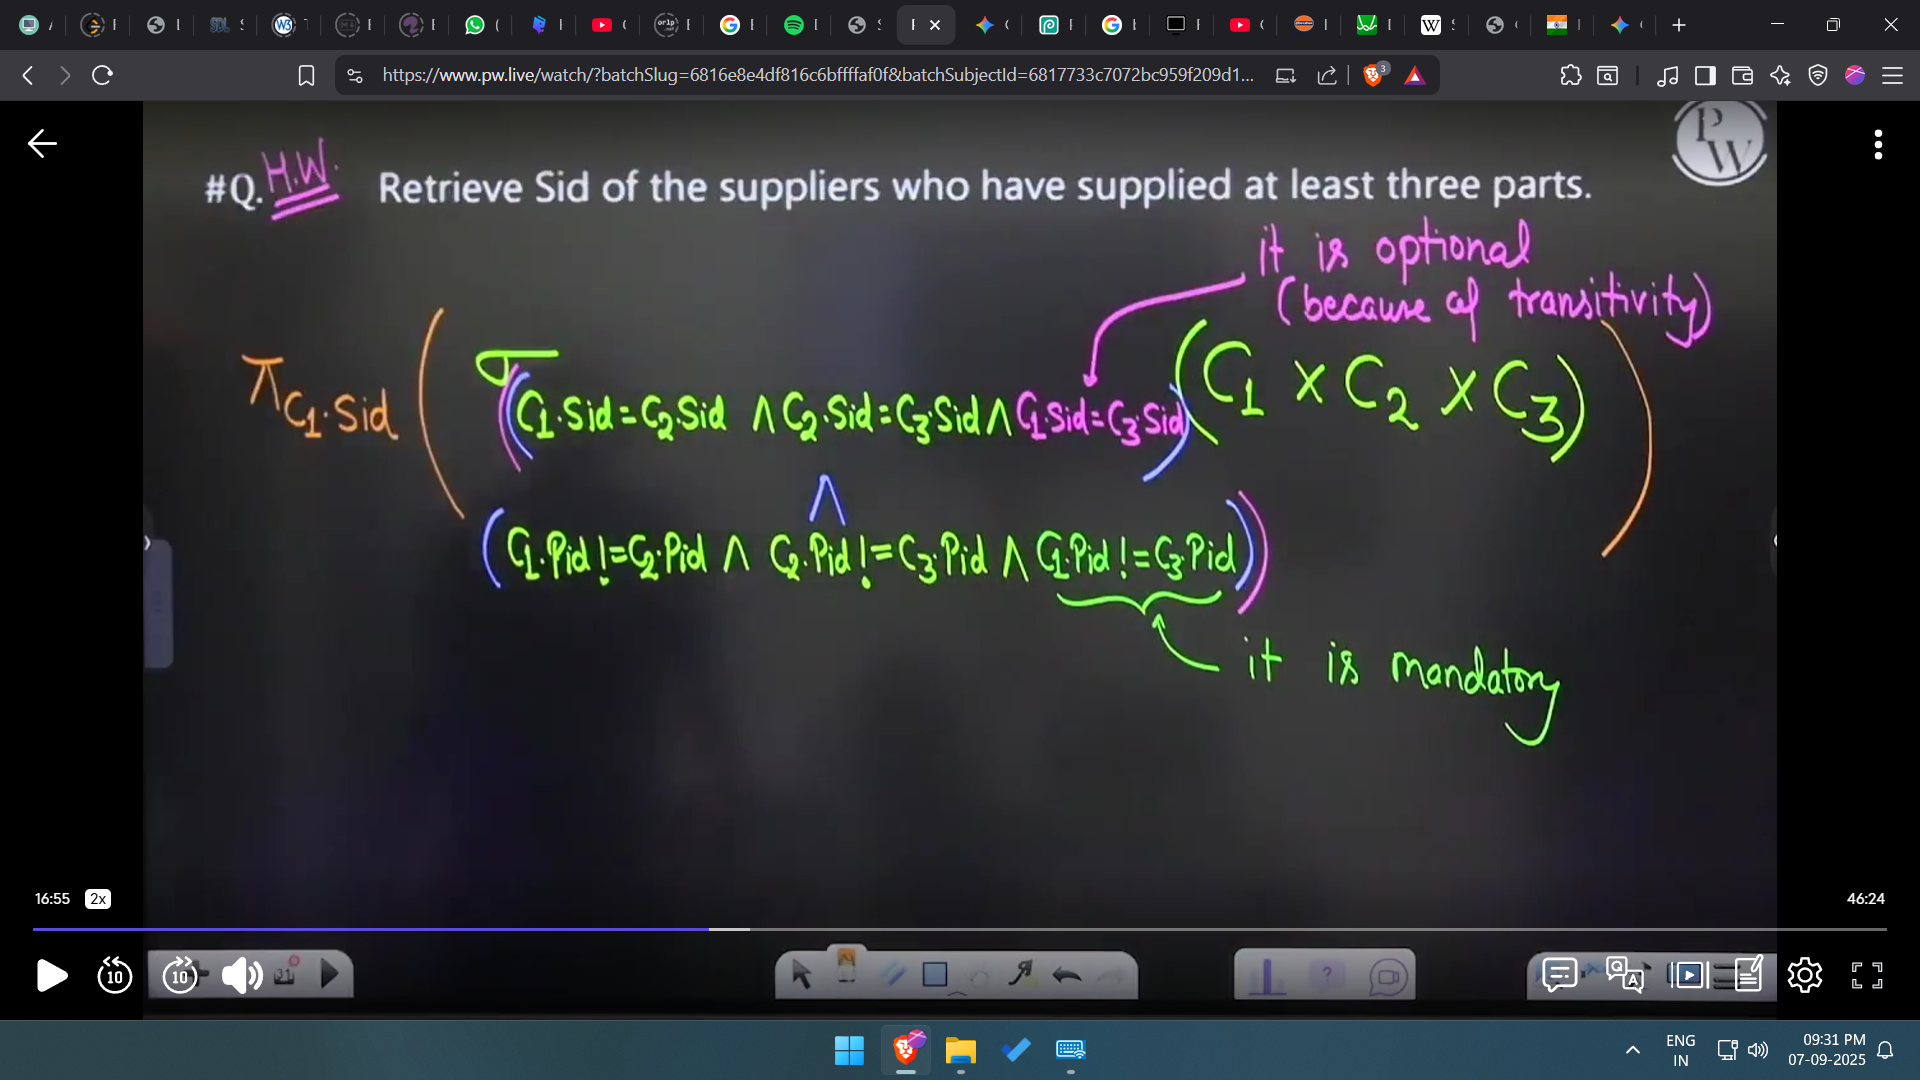 https://www.pw.live/watch/?batchSlug=6816e8e4df816c6bffffaf0f&batchSubjectId=6817733c7072bc959f209d1...
3
PW
#Q. H.W. Retrieve Sid of the suppliers who have supplied at least three parts.
it is optional
(because of transitivity)
π C₁.Sid ( σ ((C₁.Sid=C₂.Sid ∧ C₂.Sid=C₃.Sid ∧ C₁.Sid=C₃.Sid) (C₁ × C₂ × C₃) )
∧
(C₁.Pid!=C₂.Pid ∧ C₂.Pid!=C₃.Pid ∧ C₁.Pid!=C₃.Pid))
it is mandatory
16:55 2x 46:24
10 10
ENG
IN
09:31 PM
07-09-2025